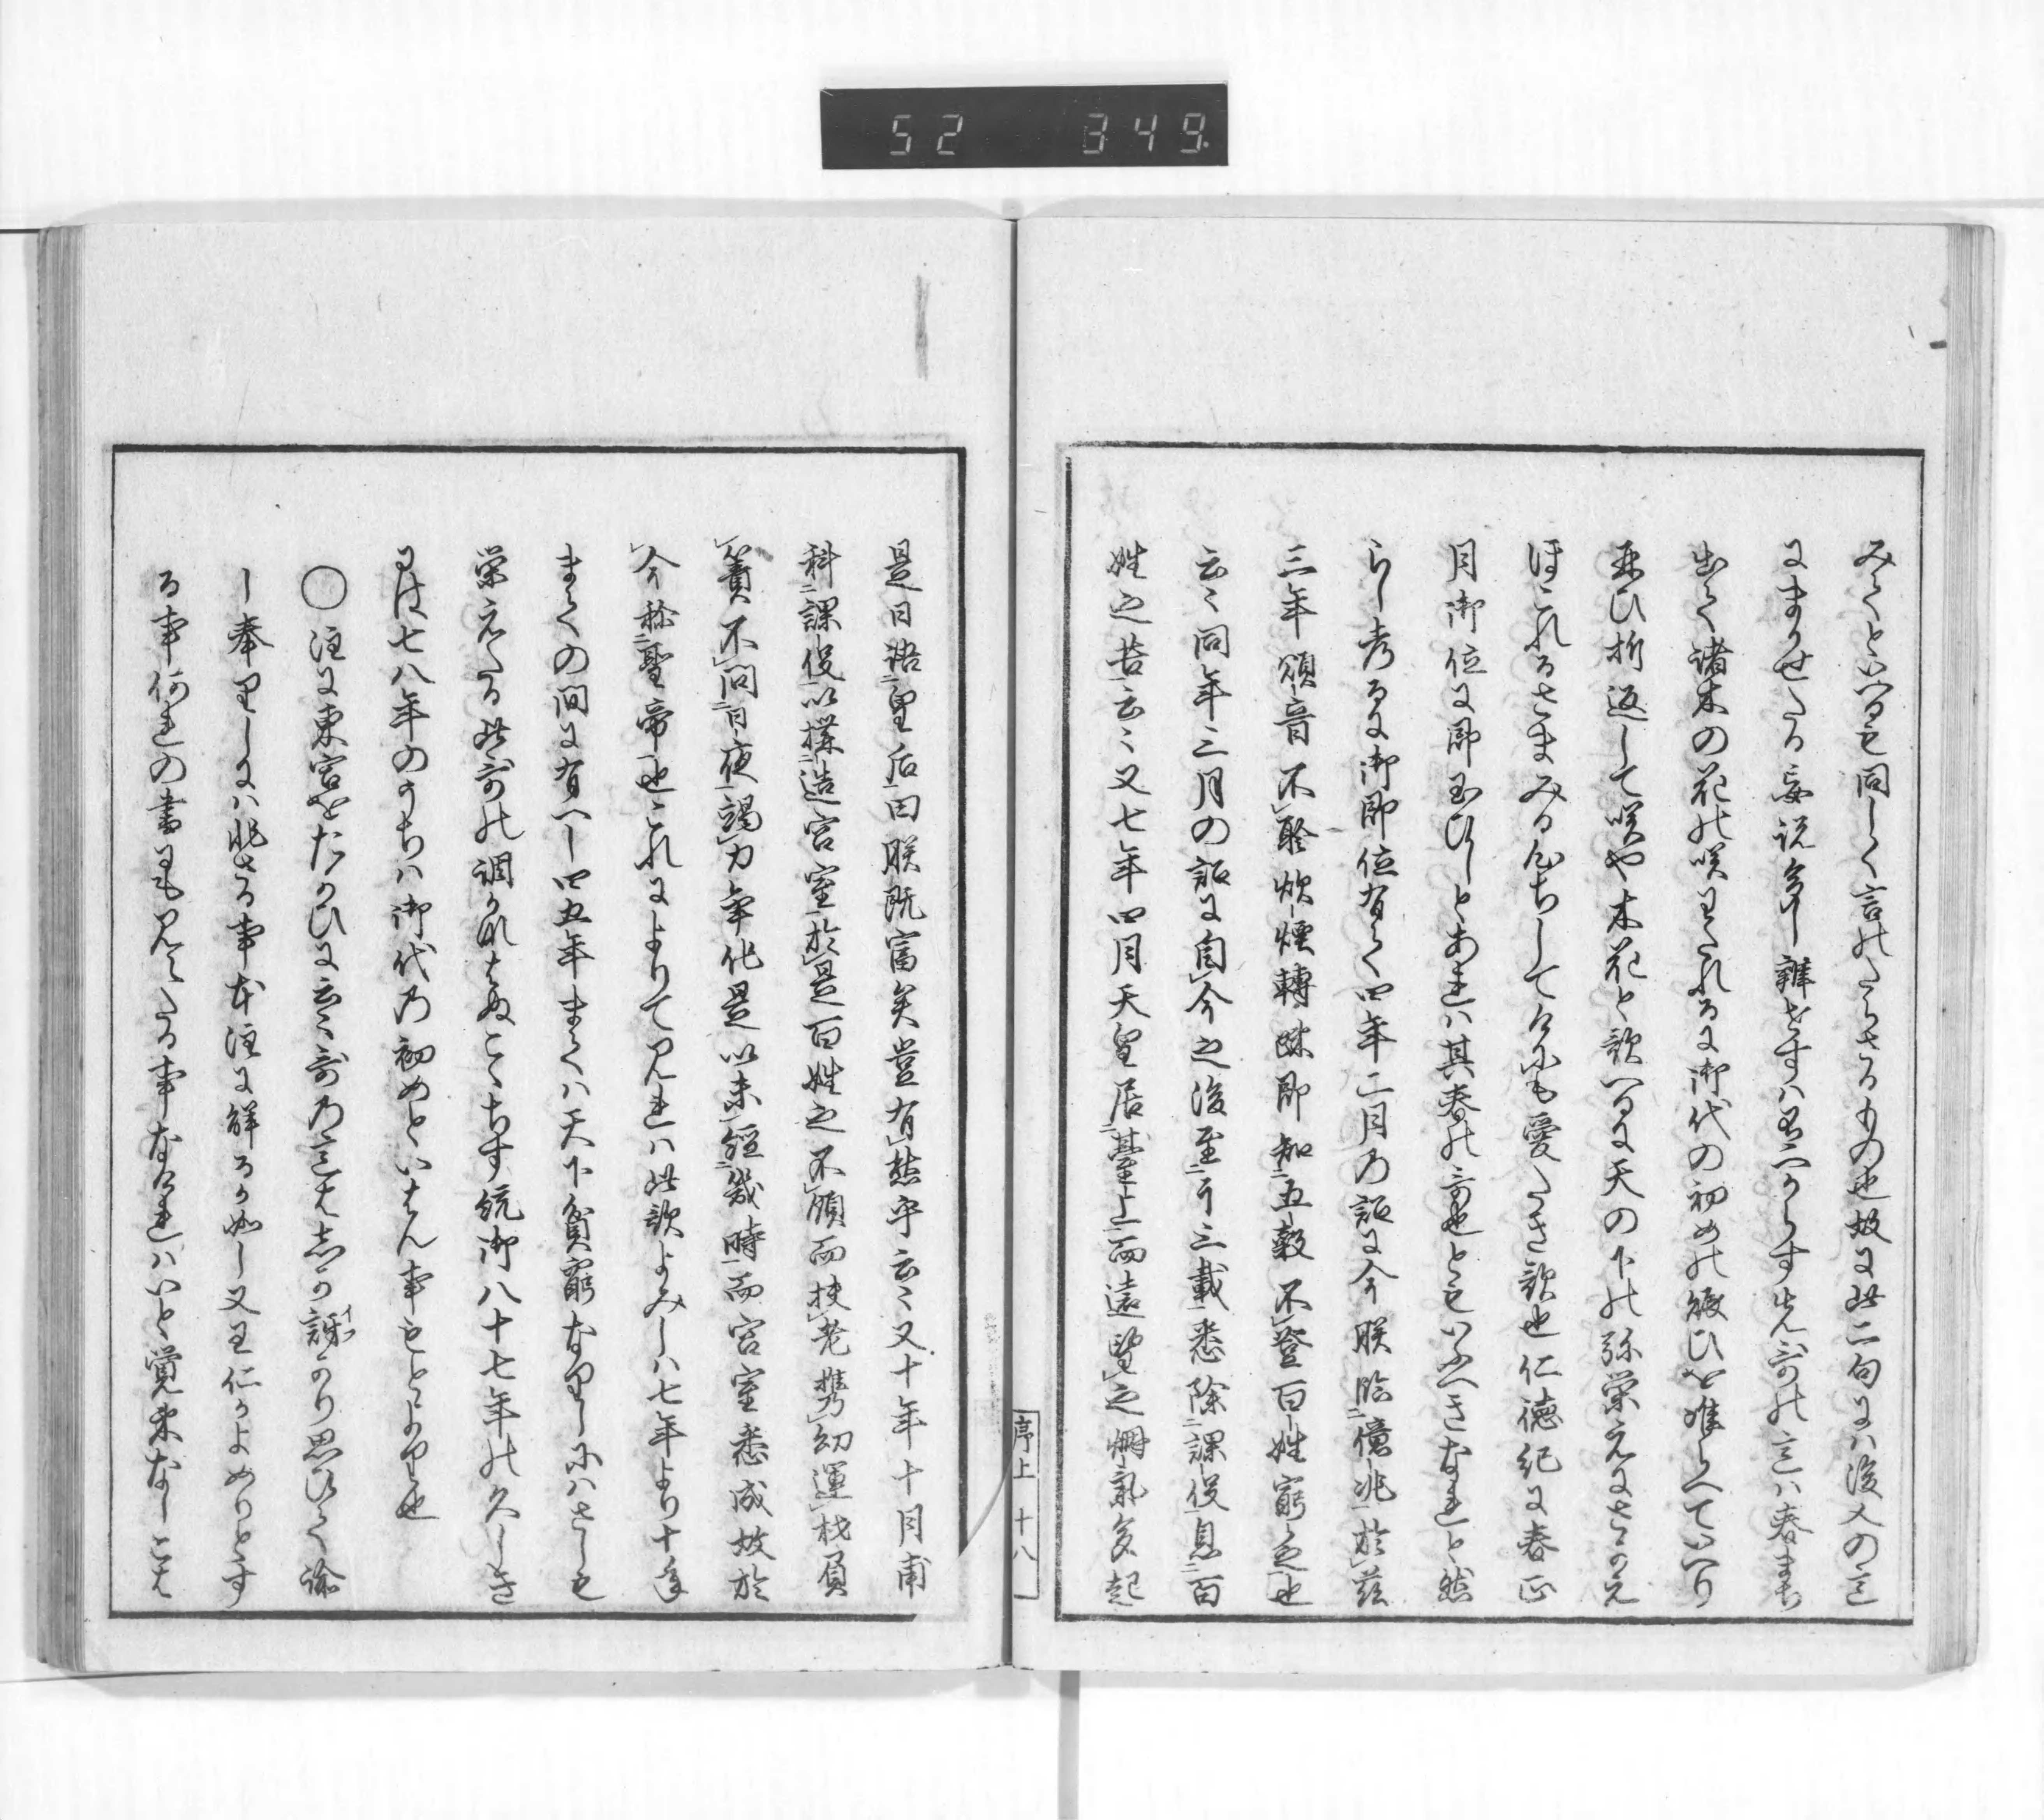 52 349.
みてといへるも同しく言のたらさるもの也故に此二句にハ後人の言
にまかせたる妄説多し辨せすハ有へからす先哥の意ハ春まち
出て諸木の花の咲にたれるに御代の初めの緩ひを准らへていへり
再ひ折返して咲や木花と歌へるに天の下の弥栄えにさかえ
ほこれるさまみる心ちしてけにも愛たき歌也仁徳紀に春正
月御位に即玉ひしとあれハ其春の哥也ともいふへきなれと然
らし考るに御即位有て四年二月乃詔に今朕臨億兆於茲
三年頌音不聆炊煙轉疎即知五穀不登百姓窮乏也
云々同年三月の詔に自今之後至于三載悉除課役息百
姓之苦云々又七年四月天皇居臺上而遠望之烟氣多起
序上 十八
是日語皇后曰朕既富矣豈有愁乎云々又十年十月甫
科課役以搆造宮室於是百姓之不領而扶老携幼運材負
簣不問日夜竭力爭作是以未經幾時而宮室悉成故於
今称聖帝也これによりて見れハ此歌よみしハ七年より十年
まての間に有へし四五年まてハ天下貧窮なりしにハさしも
栄えたる此哥の調かなはぬこゝちす統御八十七年の久しき
には七八年のうちハ御代乃初めといはん事もとより也
〇注に東宮をたかひに云々哥乃意は志か訝かり思ひて諭
イフ
し奉りしにハ非さる事本注に解るか如し又王仁かよめりとす
る事何れの書にも見えたる事なけれハいと覚束なしこは